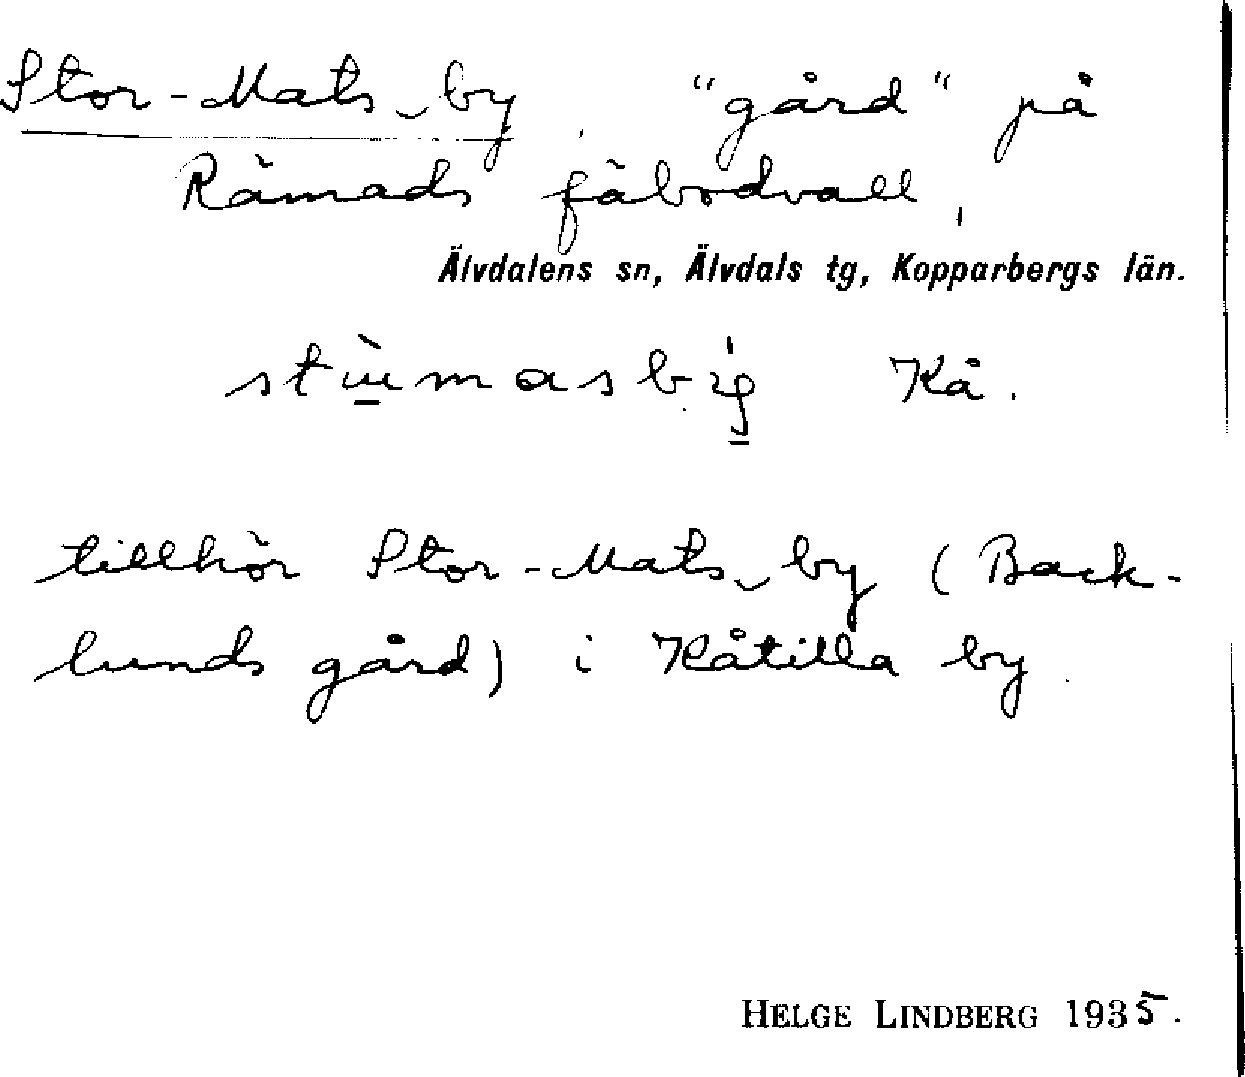 Stor-Mats by, "gård" på
Rämads fäbodvall,
Älvdalens sn, Älvdals tg, Kopparbergs län.
Kå.
tillhör Stor-Mats by (Back-
lunds gård) i Kåtilla by.
HELGE LINDBERG 1935.